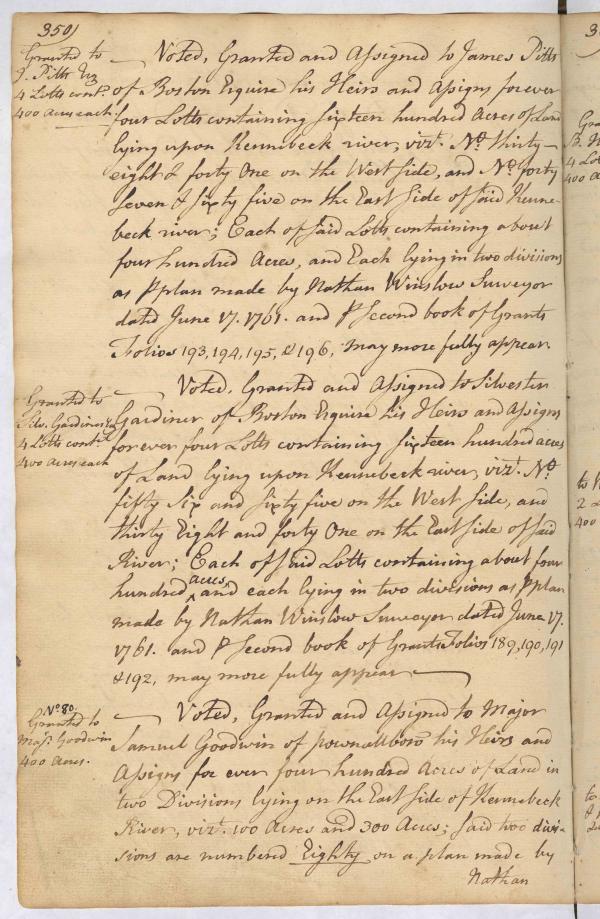 350)
Granted to
J. Pitts Esq
4 Lotts cont.
400 Acres each
Voted, Granted and Assigned to James Pitts
of Boston Esquire his Heirs and Assigns forever
four Lotts containing sixteen hundred Acres of Land
lying upon Kennebeck river, vizt. No. thirty
eight & forty One on the West side, and No. forty
seven & sixty five on the East side of said Kenne-
beck river; Each of said Lotts containing about
four hundred Acres, and Each lying in two divisions
as P plan made by Nathan Winslow Surveyor
dated June 17. 1761. and P Second book of Grants
Folios 193, 194, 195, & 196, may more fully appear
Granted to
Silv. Gardiner Esq
4 Lotts cont.
400 Acres each
Voted, Granted and Assigned to Silvester
Gardiner of Boston Esquire his Heirs and Assigns
for ever four Lotts containing sixteen hundred acres
of Land lying upon Kennebeck river, vizt. No.
fifty Six and sixty five on the West side, and
thirty Eight and forty One on the East side of said
River; Each of said Lotts containing about four
hundred acres and each lying in two divisions as P plan
made by Nathan Winslow Surveyor dated June 17.
1761. and P Second book of Grants Folios 189, 190, 191
& 192, may more fully appear
No. 80.
Granted to
Majr. Goodwin
400 Acres.
Voted, Granted and Assigned to Major
Samuel Goodwin of pownallboro his Heirs and
Assigns for ever four hundred Acres of Land in
two Divisions lying on the East side of Kennebeck
River, vizt. 100 Acres and 300 Acres; said two divi-
sions are numbered Eighty on a plan made by
Nathan